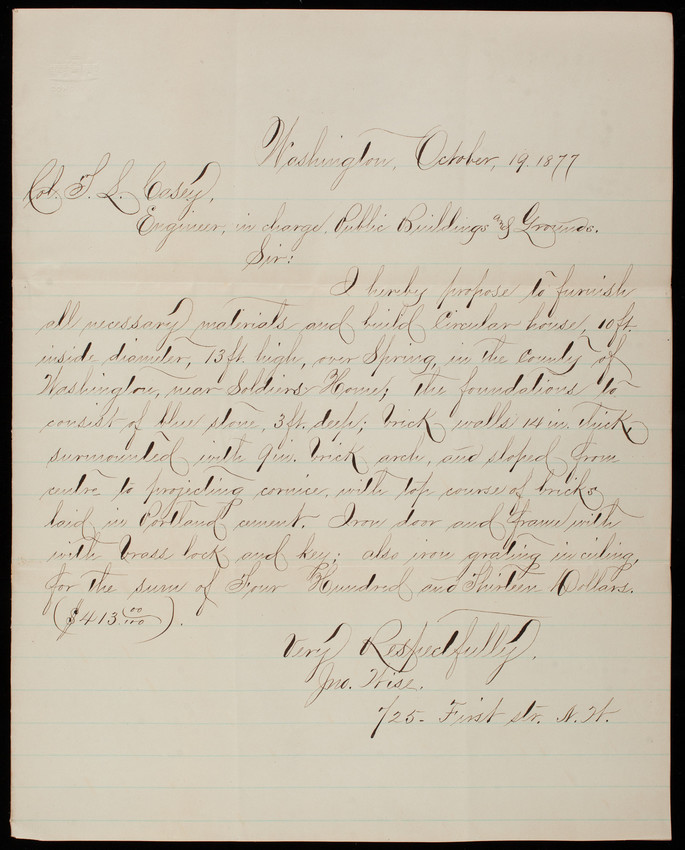 Washington, October, 19. 1877
Col. T. L. Casey,
Engineer, in charge. Public Buildings and Grounds.
Sir:
I hereby propose to furnish
all necessary materials and build Circular house, 10 ft.
inside diameter, 13 ft. high, over Spring, in the County of
Washington, near Soldiers Home; the foundations to
consist of blue stone, 3 ft. deep; brick walls 14 in. thick
surmounted with 9 in. brick arch, and sloped from
centre to projecting cornice, with top course of bricks
laid in Portland cement. Iron door and frame with
with brass lock and key; also iron grating in ciling,
for the sum of Four Hundred and Thirteen Dollars.
($413.00/100).
Very Respectfully,
Jno. Wise.
725- First str. N.W.